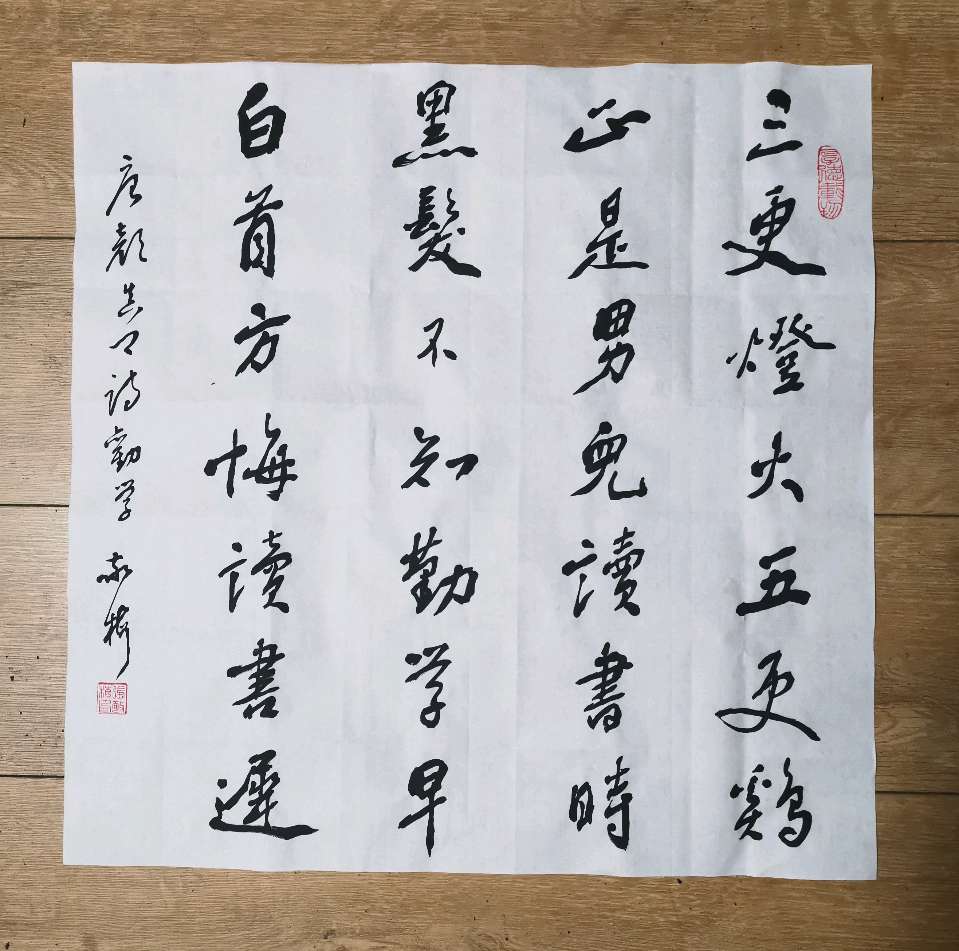 三更燈火五更鷄
正是男兒讀書時
黑髮不知勤学早
白首方悔讀書遲
唐顏真卿詩勸学
厚德載物